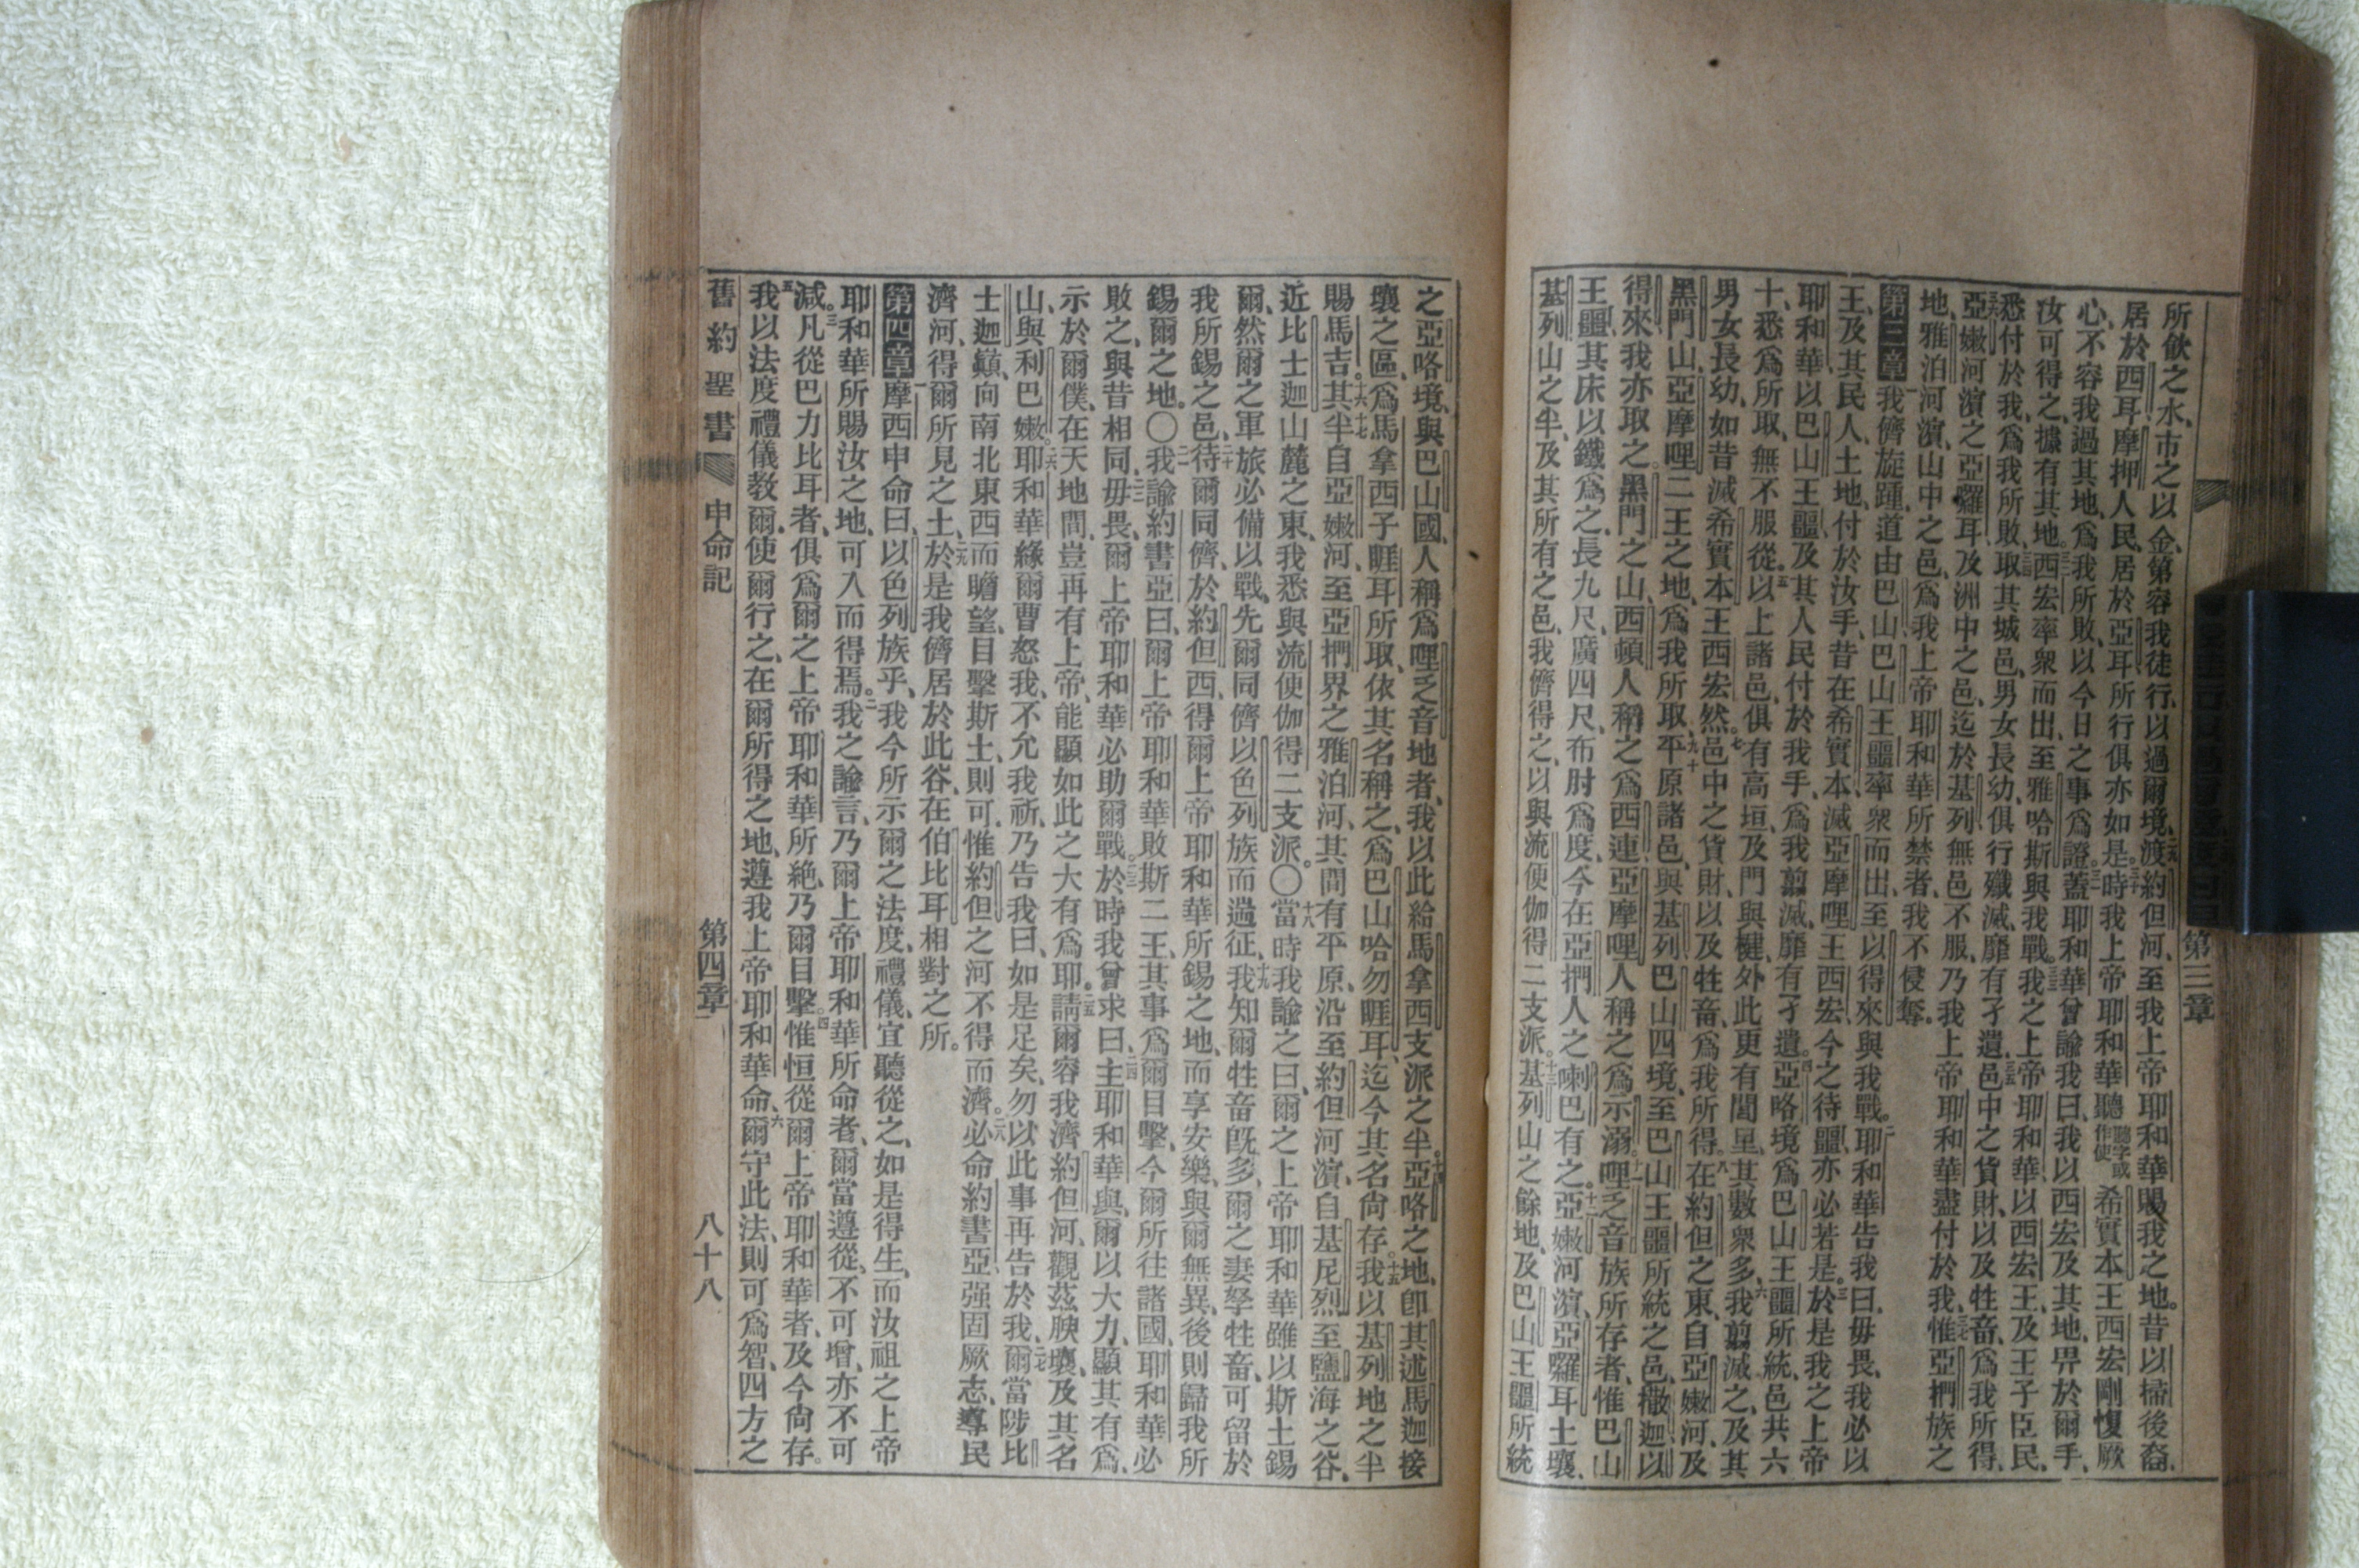 第三章
所飲之水、市之以金、第容我徒行、以過爾境、二九渡約但河、至我上帝耶和華賜我之地。昔以掃後裔、
居於西耳、摩押人民、居於亞耳、所行俱亦如是。三十時我上帝耶和華聽聽字或作使希實本王西宏剛愎厥
心、不容我過其地、爲我所敗、以今日之事爲證。三一蓋耶和華曾諭我曰、我以西宏及其地、畀於爾手、
汝可得之、據有其地。三二西宏率衆而出、至雅哈斯與我戰。三三我之上帝耶和華以西宏王、及王子臣民、
悉付於我、爲我所敗、三四取其城邑、男女長幼、俱行殲滅、靡有孑遺、三五邑中之貨財、以及牲畜、爲我所得、
三六亞嫩河濱之亞囉耳、及洲中之邑、迄於基列、無邑不服、乃我上帝耶和華盡付於我、三七惟亞捫族之
地、雅泊河濱、山中之邑、爲我上帝耶和華所禁者、我不侵奪。
第三章一我儕旋踵、道由巴山、巴山王噩率衆而出、至以得來與我戰。二耶和華告我曰、毋畏、我必以
王、及其民人、土地、付於汝手、昔在希實本、滅亞摩哩王西宏、今之待噩、亦必若是。三於是我之上帝
耶和華以巴山王噩、及其人民付於我手、爲我翦滅、靡有孑遺。四亞咯境爲巴山王噩所統、邑共六
十、悉爲所取、無不服從。五以上諸邑、俱有高垣、及門與楗、外此更有閭里、其數衆多、六我翦滅之、及其
男女長幼、如昔滅希實本王西宏然。七邑中之貨財、以及牲畜、爲我所得。八在約但之東、自亞嫩河、及
黑門山、亞摩哩二王之地、爲我所取、九十平原諸邑、與基列巴山四境、至巴山王噩所統之邑、撒迦以
得來、我亦取之。黑門之山、西頓人稱之爲西連、亞摩哩人稱之爲示溺。十一哩乏音族所存者、惟巴山
王噩、其床以鐵爲之、長九尺、廣四尺、布肘爲度、今在亞捫人之喇巴有之。十二亞嫩河濱、亞囉耳土壤、
基列山之半、及其所有之邑、我儕得之、以與流便伽得二支派。十三基列山之餘地、及巴山王噩所統
之亞咯境、與巴山國、人稱爲哩乏音地者、我以此給馬拿西支派之半。十四亞咯之地、卽其述馬迦接
壤之區、爲馬拿西子睚耳所取、依其名稱之、爲巴山哈勿睚耳、迄今其名尚存。十五我以基列地之半
賜馬吉。十六十七其半自亞嫩河、至亞捫界之雅泊河、其間有平原、沿至約但河濱、自基尼烈至鹽海之谷、
近比士迦山麓之東、我悉與流便伽得二支派。〇十八當時我諭之曰、爾之上帝耶和華雖以斯土錫
爾、然爾之軍旅必備以戰、先爾同儕以色列族而遄征、十九我知爾牲畜旣多、爾之妻孥牲畜、可留於
我所錫之邑、二十待爾同儕、於約但西、得爾上帝耶和華所錫之地、而享安樂、與爾無異、後則歸我所
錫爾之地。〇二一我諭約書亞曰、爾上帝耶和華敗斯二王、其事爲爾目擊、今爾所往諸國、耶和華必
敗之、與昔相同、二二毋畏、爾上帝耶和華必助爾戰。二三於時我曾求曰、二四主耶和華與、爾以大力、顯其有爲、
示於爾僕、在天地間、豈再有上帝、能顯如此之大有爲耶。二五請爾容我濟約但河、觀茲腴壤、及其名
山、與利巴嫩。二六耶和華緣爾曹怒我、不允我祈、乃告我曰、如是足矣、勿以此事再告於我、二七爾當陟比
士迦巔、向南北東西而瞻望、目擊斯土則可、惟約但之河不得而濟。二八必命約書亞、强固厥志、導民
濟河、得爾所見之土、二九於是我儕居於此谷、在伯比耳相對之所。
第四章一摩西申命曰、以色列族乎、我今所示爾之法度、禮儀、宜聽從之、如是得生、而汝祖之上帝
耶和華所賜汝之地、可入而得焉。二我之諭言、乃爾上帝耶和華所命者、爾當遵從、不可增、亦不可
減。三凡從巴力比耳者、俱爲爾之上帝耶和華所絶、乃爾目擊。四惟恒從爾上帝耶和華者、及今尚存。
五我以法度禮儀教爾、使爾行之、在爾所得之地、遵我上帝耶和華命、六爾守此法、則可爲智、四方之
舊約聖書 申命記 第四章 八十八